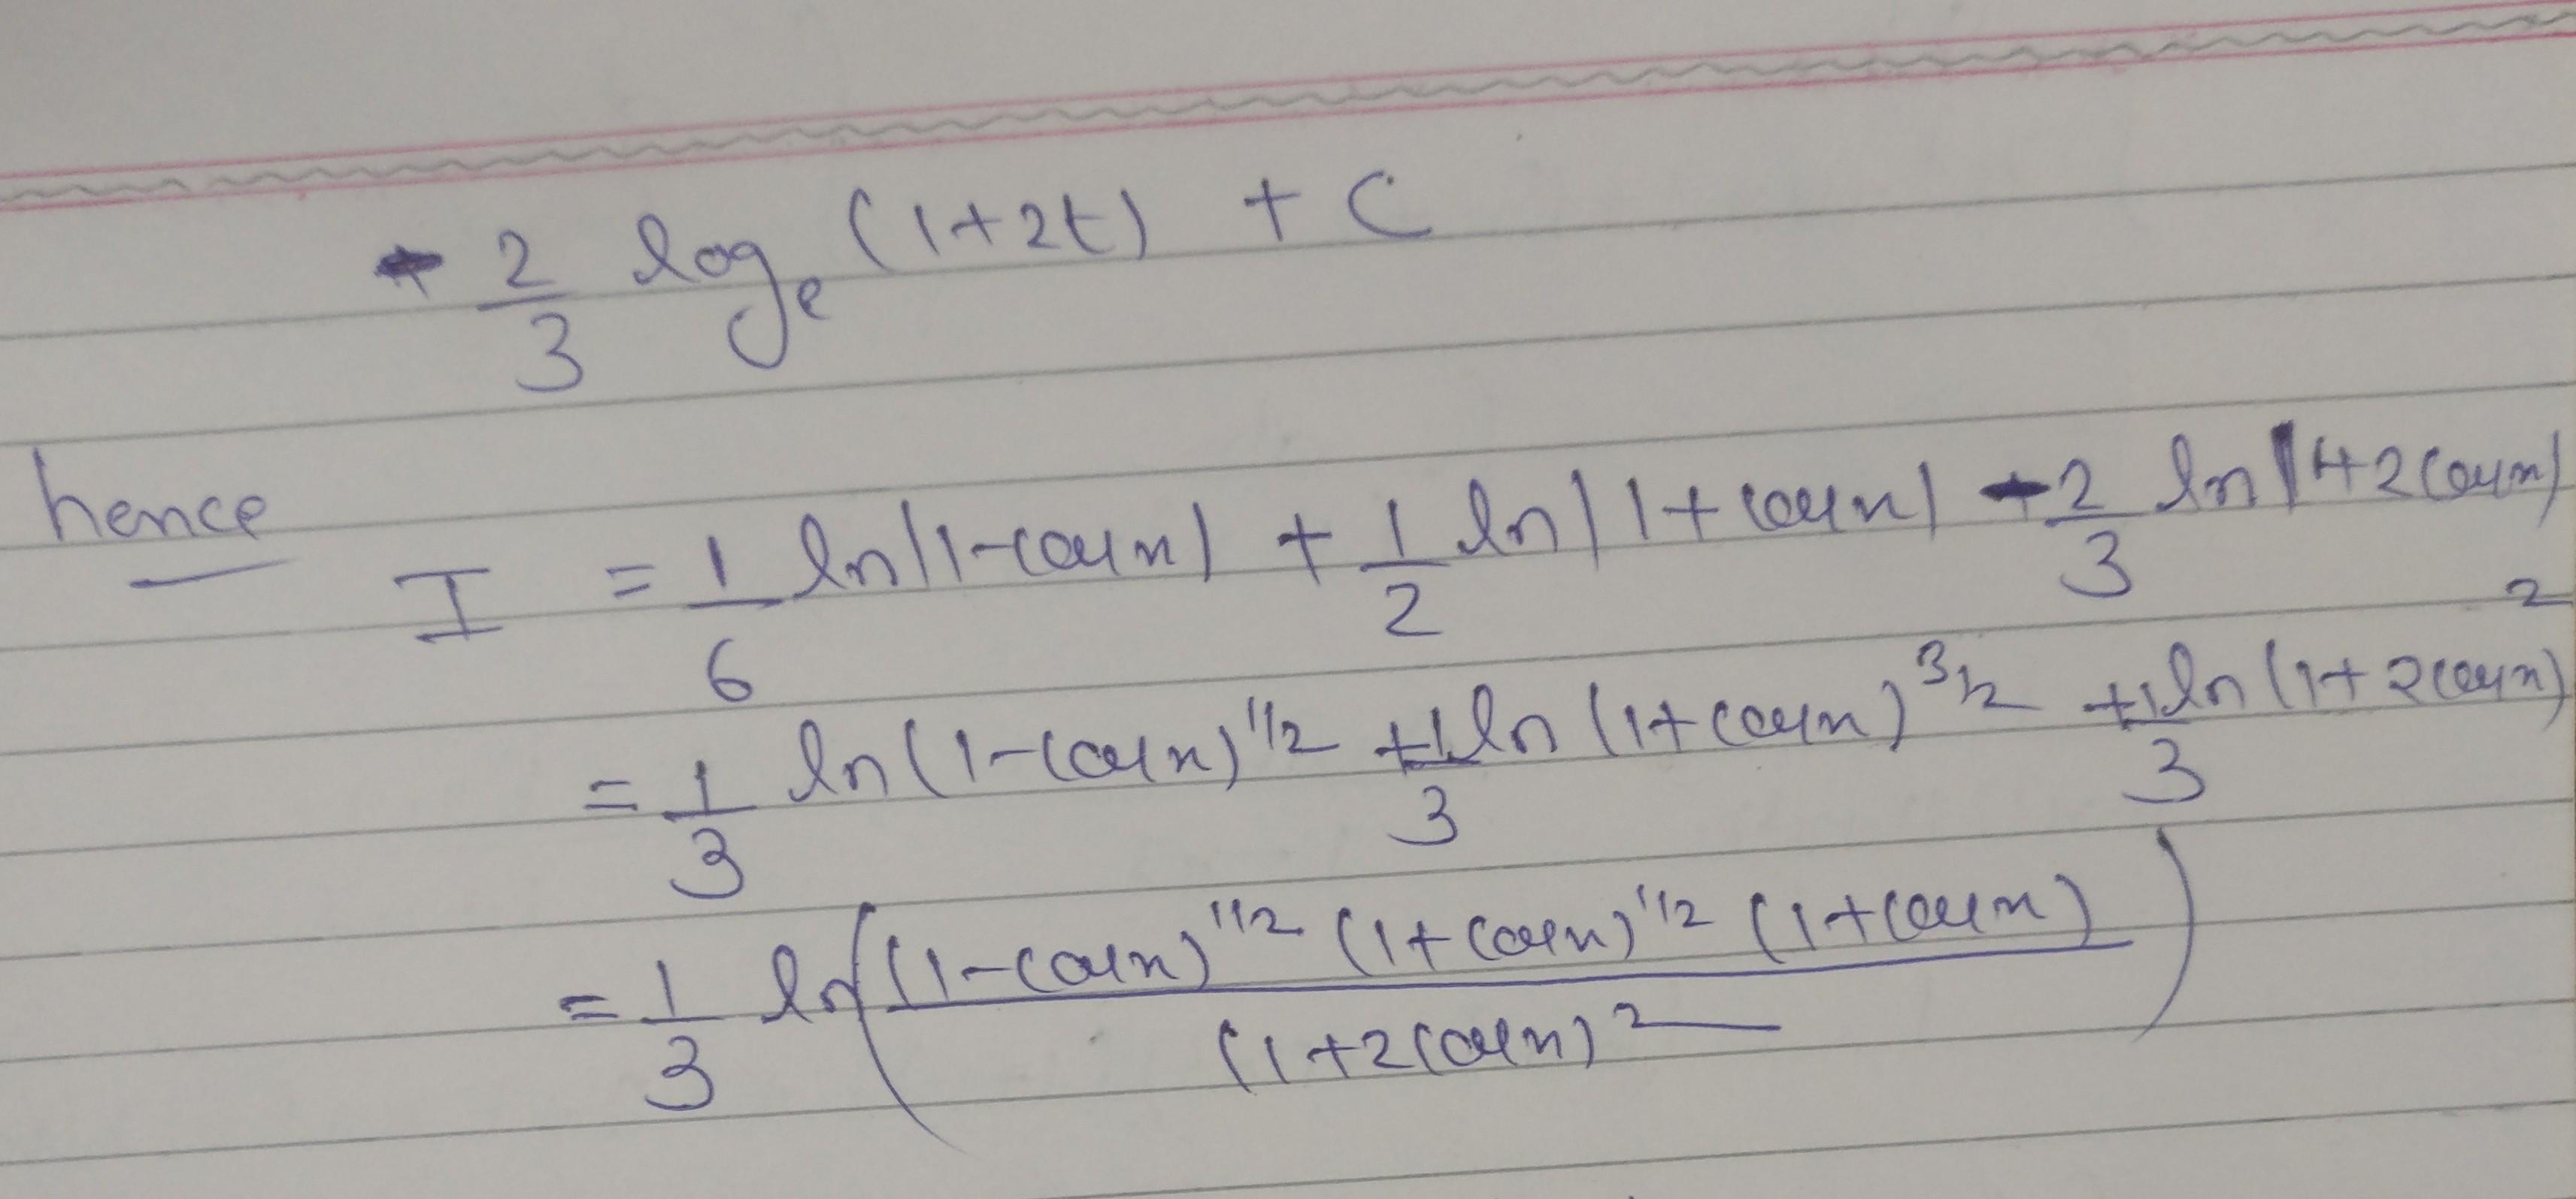 - 2/3 log_e (1+2t) + C
hence
I = 1/6 ln|1-cosx| + 1/2 ln|1+cosx| - 2/3 ln|1+2cosx|
= 1/3 ln(1-cosx)^1/2 + 1/3 ln(1+cosx)^3/2 + 1/3 ln(1+2cosx)^2
= 1/3 ln((1-cosx)^1/2 (1+cosx)^1/2 (1+cosx) / (1+2cosx)^2)